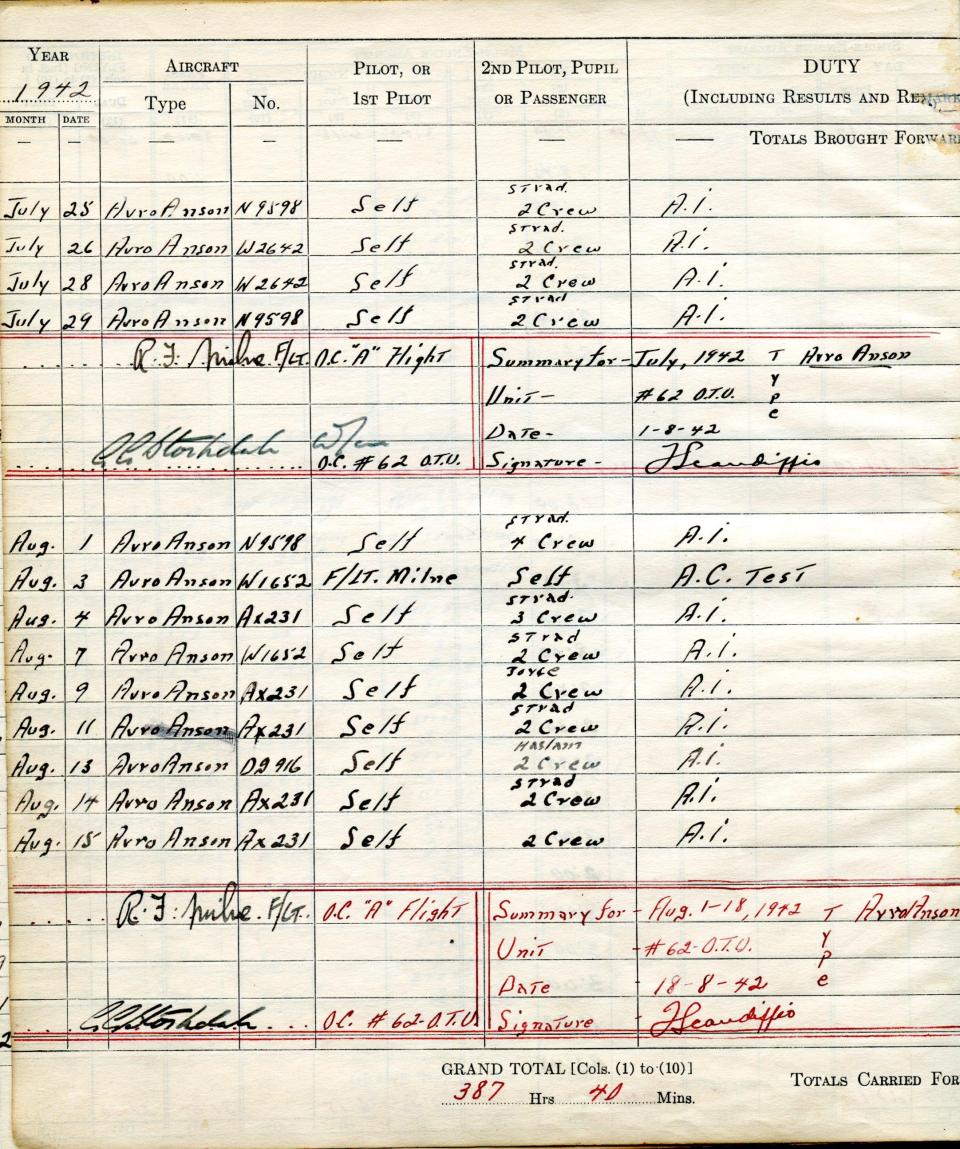 YEAR AIRCRAFT PILOT, OR 2ND PILOT, PUPIL DUTY
1942 Type No. 1ST PILOT OR PASSENGER (INCLUDING RESULTS AND REMARKS
MONTH DATE
— — — — — — — TOTALS BROUGHT FORWAR
Strad.
July 25 Avro Anson N9598 Self 2 Crew A.I.
Strad.
July 26 Avro Anson W2642 Self 2 Crew A.I.
Strad.
July 28 Avro Anson W2642 Self 2 Crew A.I.
Strad
July 29 Avro Anson N9598 Self 2 Crew A.I.
R.F. Milne F/LT. O.C. "A" Flight Summary for - July, 1942 Type Avro Anson
Unit - #62 O.T.U.
Date - 1-8-42
O.C. #62 O.T.U. Signature - J Scandiffio
Strad.
Aug. 1 Avro Anson N9598 Self 4 Crew A.I.
Aug. 3 Avro Anson W1652 F/LT. Milne Self A.C. Test
Strad.
Aug. 4 Avro Anson Ax231 Self 3 Crew A.I.
Strad
Aug. 7 Avro Anson W1652 Self 2 Crew A.I.
Joyce
Aug. 9 Avro Anson Ax231 Self 2 Crew A.I.
Strad
Aug. 11 Avro Anson Ax231 Self 2 Crew A.I.
Haslam
Aug. 13 Avro Anson DJ916 Self 2 Crew A.I.
Strad
Aug. 14 Avro Anson Ax231 Self 2 Crew A.I.
Aug. 15 Avro Anson Ax231 Self 2 Crew A.I.
R.F. Milne. F/LT. O.C. "A" Flight Summary for - Aug. 1-18, 1942 Type Avro Anson
Unit - #62-O.T.U.
Date 18-8-42
O.C. #62-O.T.U. Signature - J Scandiffio
GRAND TOTAL [Cols. (1) to (10)] TOTALS CARRIED FOR
387 Hrs 40 Mins.